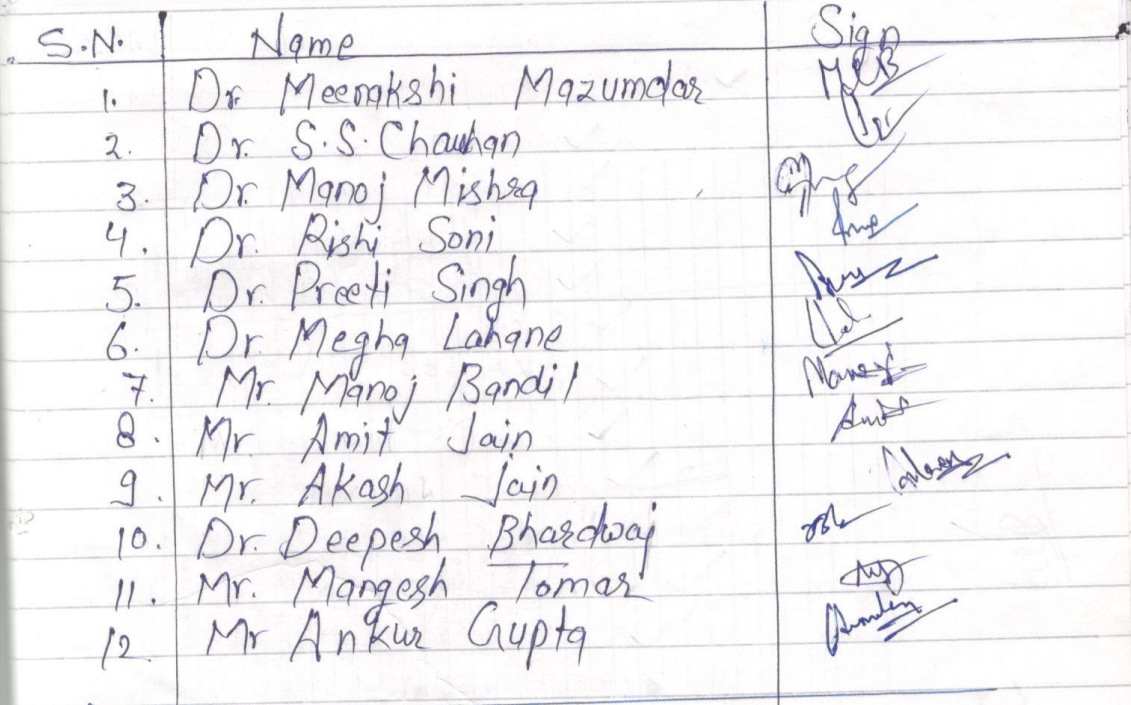 S.N. Name Sign
1. Dr. Meenakshi Mazumdar
2. Dr. S.S. Chauhan
3. Dr. Manoj Mishra
4. Dr. Rishi Soni
5. Dr. Preeti Singh
6. Dr. Megha Lahane
7. Mr. Manoj Bandil
8. Mr. Amit Jain
9. Mr. Akash Jain
10. Dr. Deepesh Bhardwaj
11. Mr. Mangesh Tomar
12 Mr Ankur Gupta